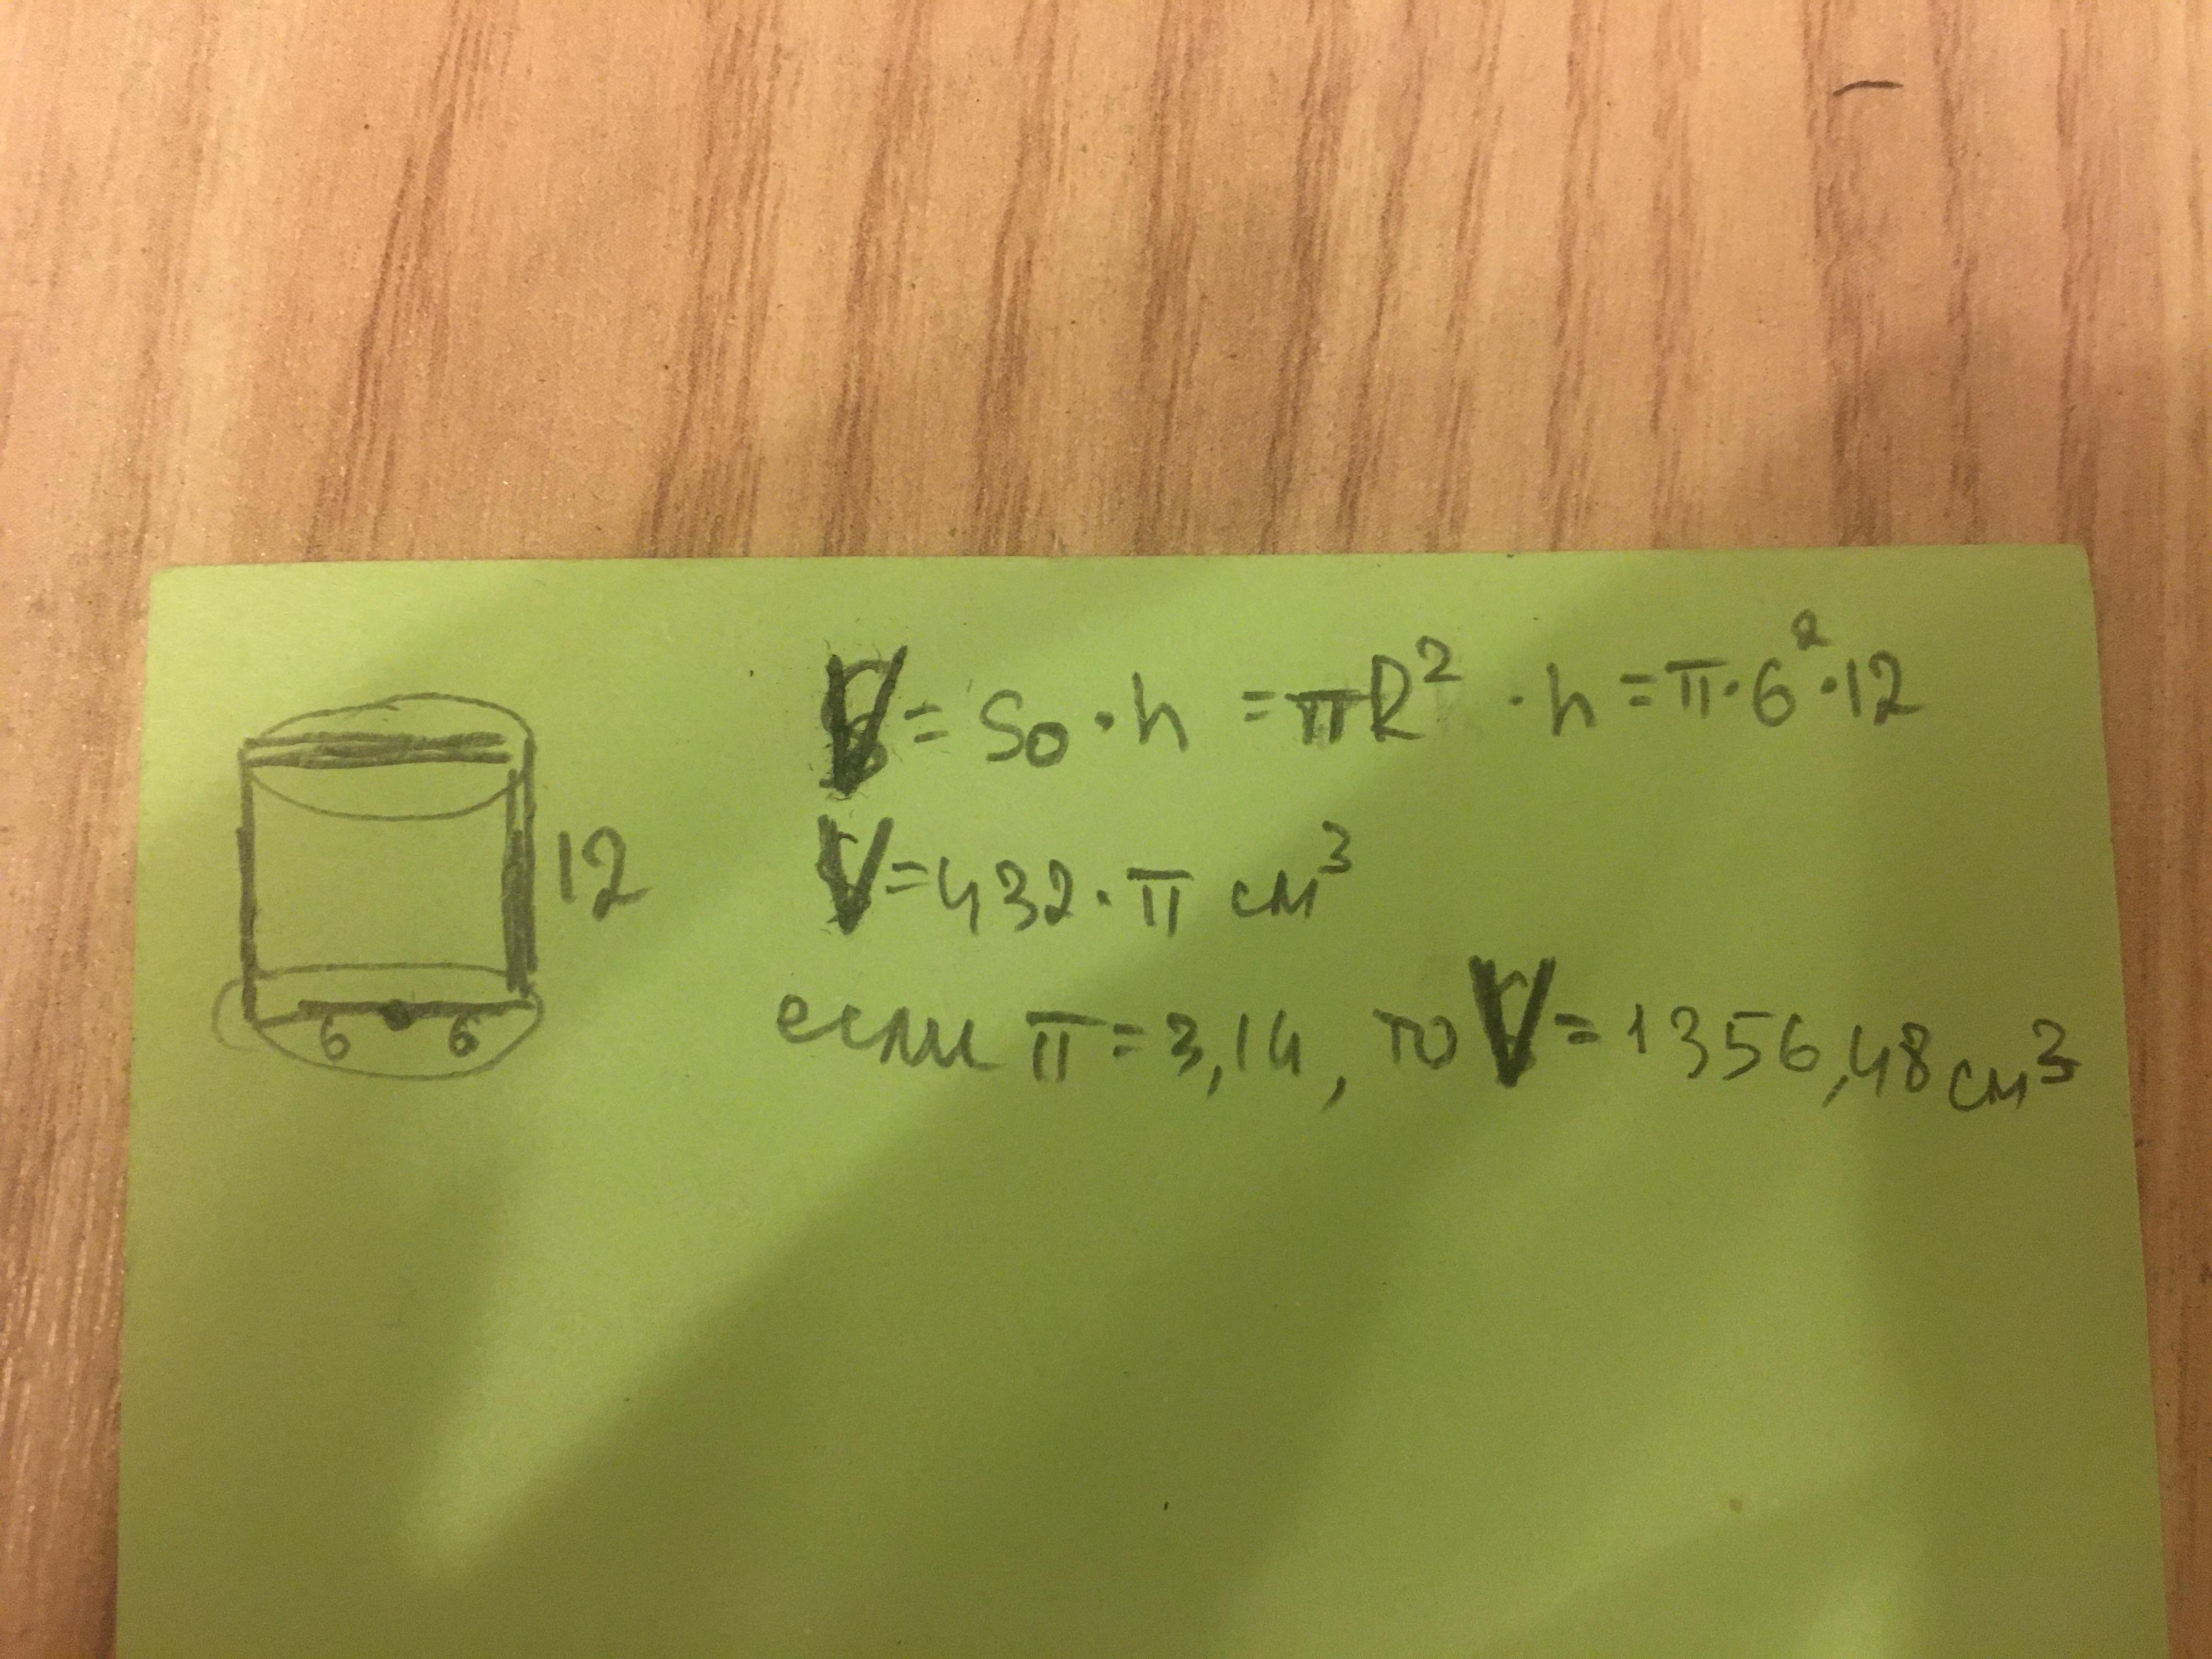 V = S₀ · h = πR² · h = π · 6² · 12
12
V = 432 · π см³
6 6
если π = 3,14, то V = 1356,48 см³